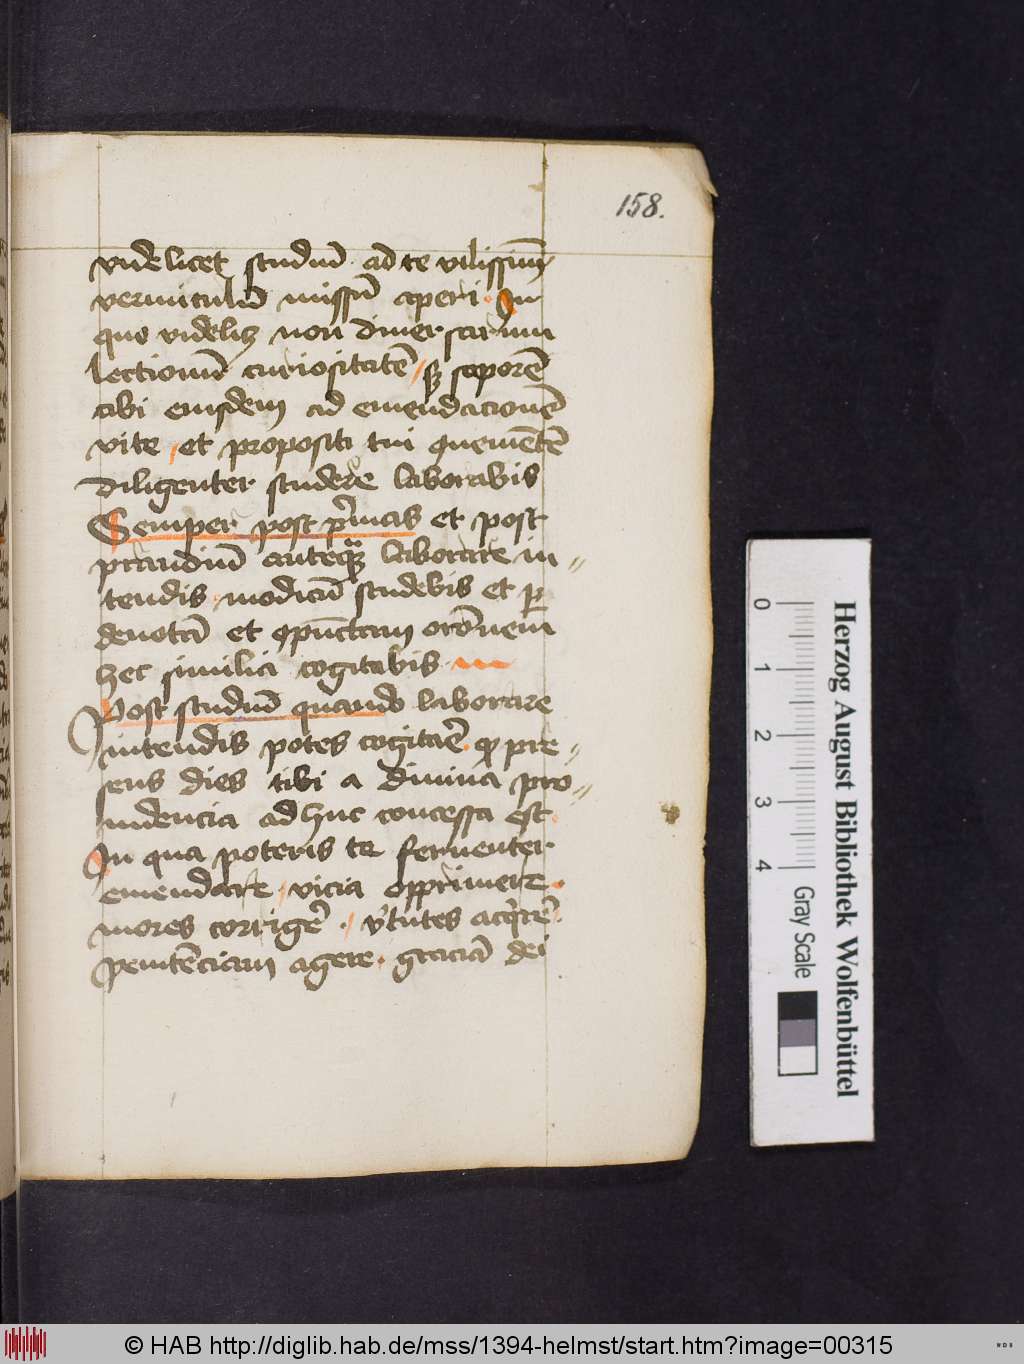 158.
videlicet studiū ad te vilissimū
vermiculū missū aperi. In
quo videlicꝫ non diuersarum
lectionū curiositatē / sꝫ soporē
tibi eiusdem ad emendacionē
vite / et propositi tui
diligenter studere laborabis
Semper post pͥmas et post
prandiū anteqͣꝫ laborare in-
tendis modicū studebis et ꝑ
deuotā et 9pūctam orōnem
hec similia cogitabis
Post studiū quando laborare
intendis potes cogitaē ꝙ pre-
sens dies tibi a diuina pro-
uidencia adhuc concessa est.
In qua poteris te feruenter
emendare / vicia opprimere.
mores corrigē̓ . / v̓tutes acq̓rē̓.
penitēciam agere. graciā dei
0 1 2 3 4
Gray Scale
Herzog August Bibliothek Wolfenbüttel
© HAB http://diglib.hab.de/mss/1394-helmst/start.htm?image=00315